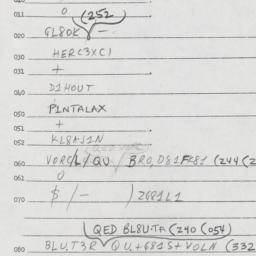 011 0 (252
020 GL80K -
030 HERC3XC1
031 +
040 D1HOUT
050 P1NTALAX
051 +
052 KL8AJ1N
060 VORC/L/QU BRO,D81FL81 (244(2
061 0
070 $/- )2681L1
QED BL8U-TA (240 (054)
080 BLU,T3R QU,+681S+VOLN (332